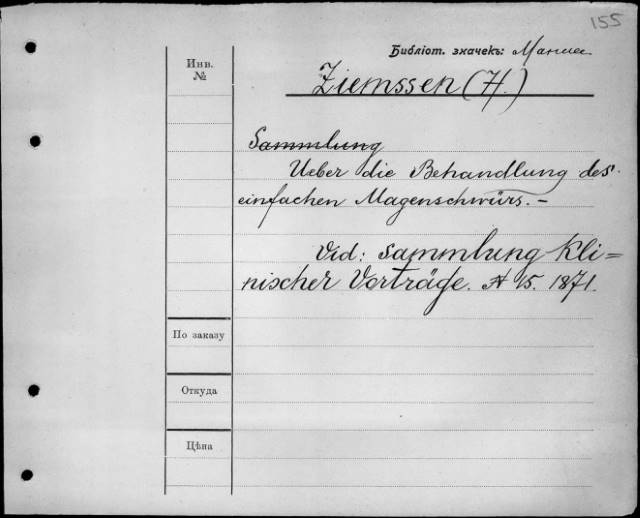 155
Библіот. значекъ:
Инв.
№
Ziemssen (H.)
Sammlung
Ueber die Behandlung des
einfachen Magenschwürs. –
Vid: Sammlung Kli=
nischer Vorträge. № 15. 1871.
По заказу
Откуда
Цѣна